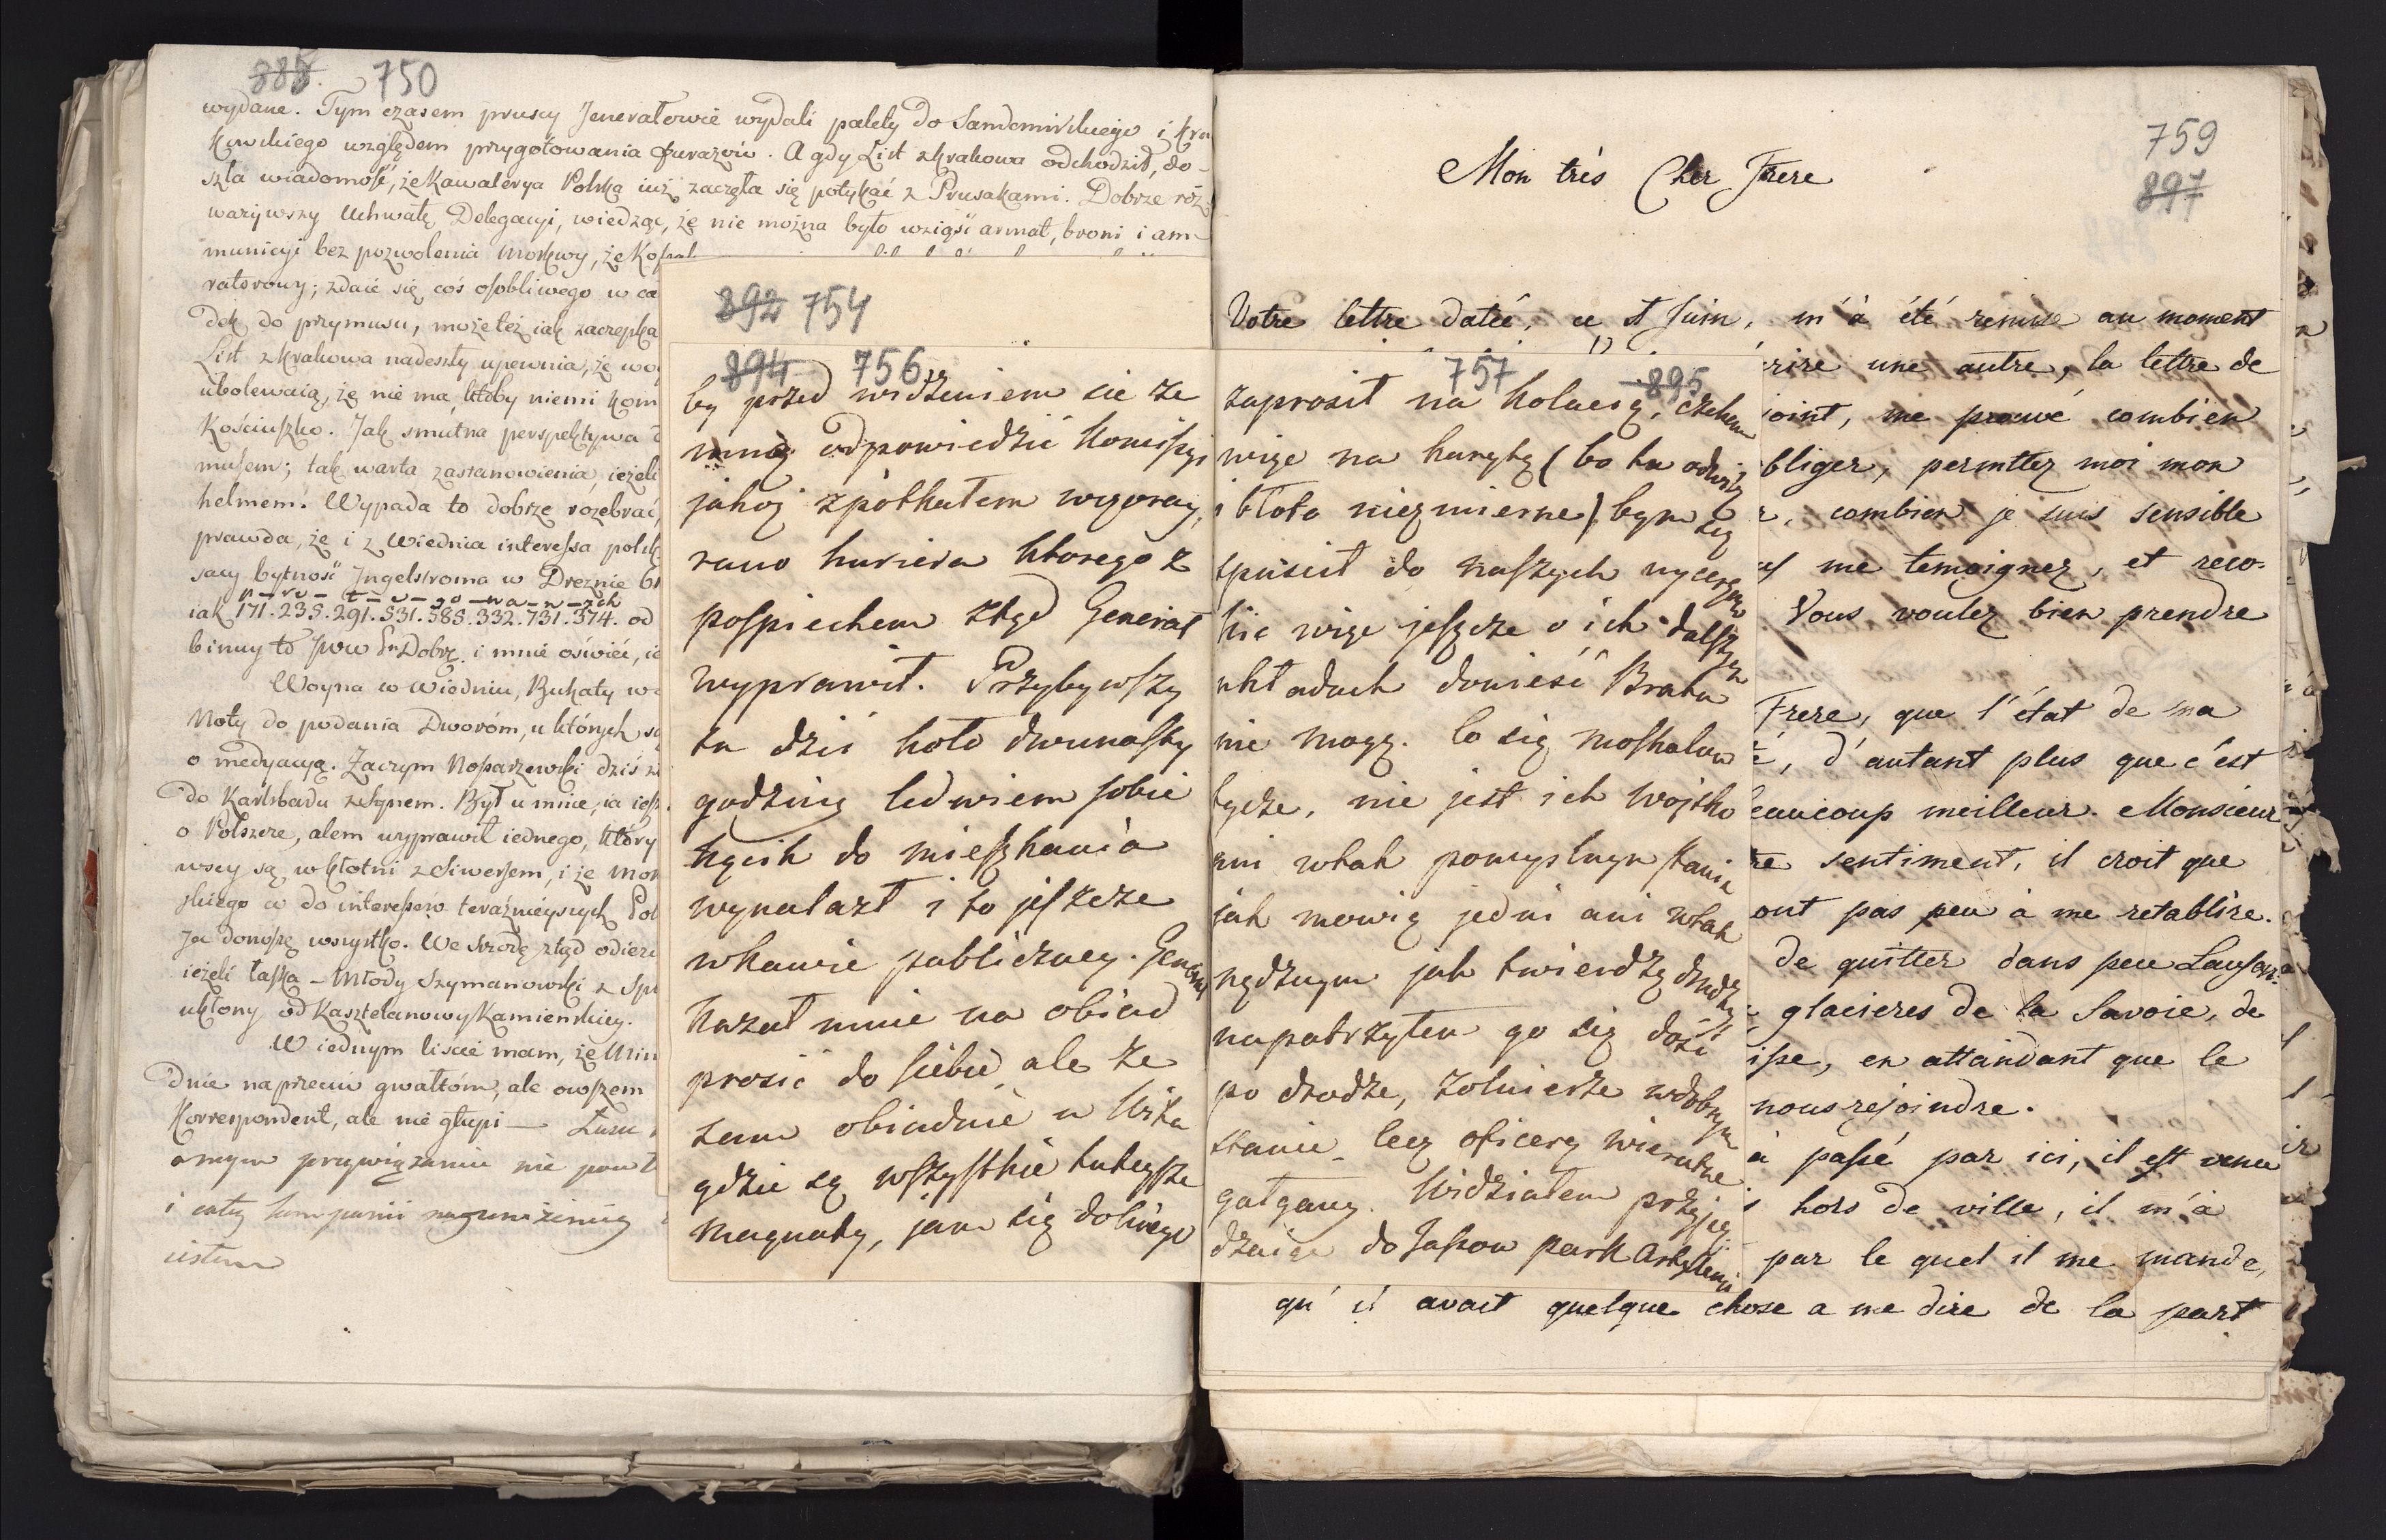 885. 750
wydane. Tym czasem pruscy Jenerałowie wydali palety do Sandomirskiego i Kra
kowskiego względem przygotowania furażów. A gdy List z Krakowa odchodził, do-
szła wiadomość, że Kawalerya Polska już zaczęła się potykać z Prusakami. Dobrze roz
ważywszy Uchwałę Delegacyi, wiedząc, że nie można było wziąść armat, broni i am-
municyi bez pozwolenia Moskwy, że
ratorowy; zdaie się coś osobliwego w
dek do przymusu, może też iak zaczepka
List z Krakowa nadeszły upewnia, że
ubolewaią, że nie ma, któby niemi kom
Kościuszko. Jak smutna perspektywa
musem; tak warta zastanowienia, ieżeli
helmem. Wypada to dobrze rozebrać,
prawda, że i z Wiednia interessa polsk
sacy bytność Ingelstroma w Dreznie
iak 171. 235. 291. 531. 585. 332. 731. 374. od
binuy to Jww Dobrz. i mnie oświeć,
Woyna w Wiedniu, Bukaty
Noty do podania Dworóm, u których
o medyacyą. Zaczym Nosarzewski dziś
do Karlsbadu z Synem. Był u mnie, ia
o Polszcze, alem wyprawił iednego, który
wscy są w kłotni z Siwersem, i że
skiego w do interesów teraźnieyszych Pol
Ja donoszę wszystko. We Szrodę ztąd
ieżeli łaska – Młody Szymanowski z
ukłony od Kasztelanowy Kamienskiey.
W iednym liście mam, że
dnie naprzeciw gwałtóm, ale owszem
Korrespondent, ale nie głupi —
o mym przywiązaniu nie
i całey kompanii
892 754
894 756
by przed widzeniem sie ze
mną odpowiedzić Komissyi
jakoż zpotkałem wczoray
rano kuriera ktorego z
pospiechem ztąd Generał
wyprawił. Przybywszy
tu dziś koło dwunasty
godziny ledwiem sobie
kącik do mieszkania
wynalazł i to jeszcze
w kawie publiczney. Generał
kazał mnie na obiad
prosić do siebie ale że
sam obiaduie u
gdzie są wszystkie tuteysze
magnaty, jam się do niego
757 895
zaprosił na kolacią, czekam
więc na karytę (bo tu odwilż
i błoto niezmierne) bym się
spuścił do naszych
nic więc jeszcze o ich dalszych
układach donieść Bratu
nie mogę. Co się moskalow
tycze, nie jest ich woysko
ani wtak pomyslnym stanie
jak mowią jedni ani wtak
nędznym jak twierdzą drudzy
napatrzyłem go się dość
po drodze, zołnierze w dobrym
stanie lecz oficery wierutne
gałgany. Widziałem przyje
do Jassow park Artyleryi
759
897
Mon très Cher Frere
Votre lettre datée, ce Juin, m'à été remise au moment
rire une autre, la lettre de
joint, me prouvé combien
bliger, permttez moi mon
combien je suis sensible
me temoignez, et reco-
Vous voulez bien prendre
Frere, que l'état de ma
d'autant plus que c'est
eaucoup meilleur. Monsieur
re sentiment, il croit que
ont pas peu à me retablire.
de quitter dans peu
glacieres de la Savoie, de
isse, en attandant que le
nous rejoindre.
à passé par ici, il est venu
hors de ville, il m'à
par le quel il me mande,
qu'il avait quelque chose a me dire de la part